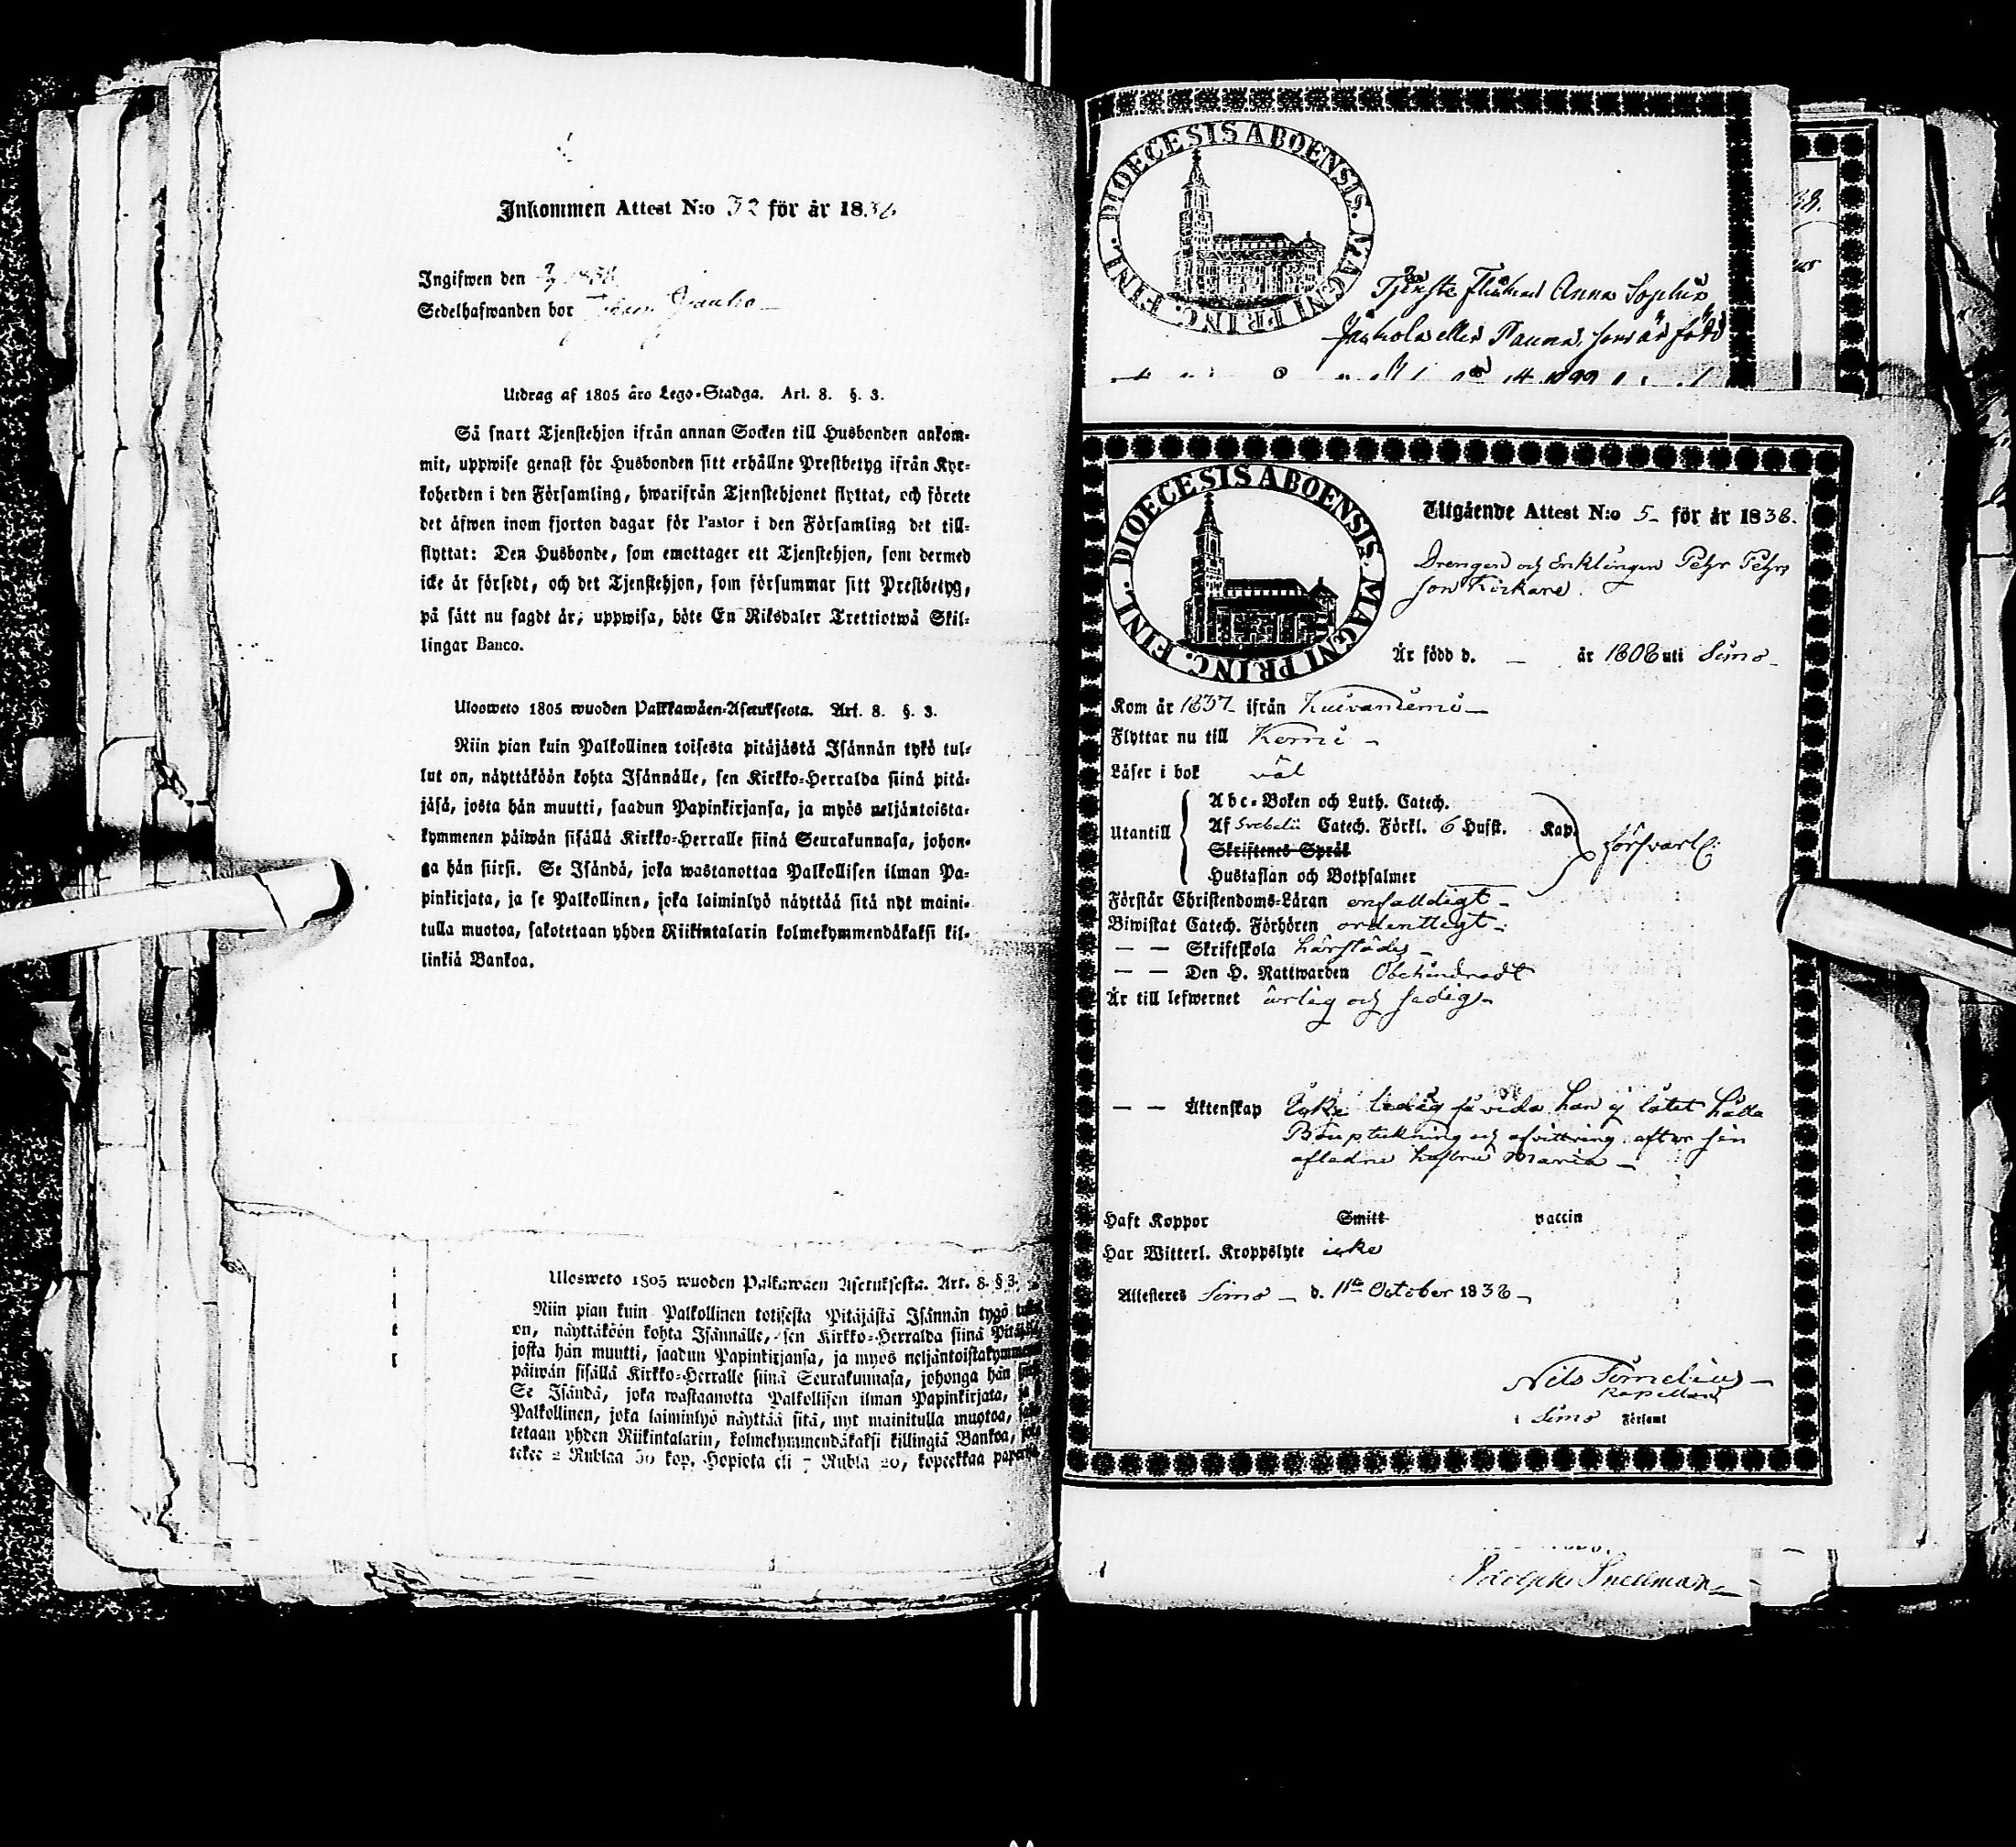 Inkommen Attest N:o 32 för år 183
Ingifwen den
Sedelhafwanden bor
Utdrag af 1805 års Lego-Stadga. Art. 8. §. 3.
Så snart Tjenstehjon ifrån annan Socken till Husbonden ankom-
mit, uppwise genast för Husbonden sitt erhållne Prestbetyg ifrån Kyr-
koherden i den Församling, hwarifrån Tjenstehjonet flyttat, och förete
det äfwen inom fjorton dagar för Pastor i den Församling det till-
flyttat: Den Husbonde, som emottager ett Tjenstehjon, som dermed
icke är försedt, och det Tjenstehjon, som försummar sitt Prestbetyg,
på sätt nu sagdt är, uppwisa, böte En Riksdaler Trettiotwå Skil-
lingar Banco.
Ulosweto 1805 wuoden Palkkawäen-Asetuksesta. Art. 8. §. 3.
Niin pian kuin Palkollinen toisesta pitäjästä Isännän tykö tul-
lut on, näyttäköön kohta Isännälle, sen Kirkko-Herralda siinä pitä-
jäsä, josta hän muutti, saadun Papinkirjansa, ja myös neljäntoista-
kymmenen päiwän sisällä Kirkko-Herralle siinä Seurakunnasa, johon-
ga hän siirsi. Se Isändä, joka wastanottaa Palkollisen ilman Pa-
pinkirjata, ja se Palkollinen, joka laiminlyö näyttää sitä nyt maini-
tulla muotoa, sakotetaan yhden Riikintalarin kolmekymmendäkaksi kil-
linkiä Bankoa.
Ulosweto 1805 wuoden Palkawäen Asetuksesta. Art. 8. § 3.
Niin pian kuin Palkollinen toisesta Pitäjästä Isännän tygö
on, näyttäköön kohta Isännälle, sen Kirkko-Herralda siinä
josta hän muutti, saadun Papinkirjansa, ja myös neljäntoistakymmenen
päiwän sisällä Kirkko-Herralle siinä Seurakunnasa, johonga hän
Se Isändä, joka wastaanotta Palkollisen ilman Papinkirjata,
Palkollinen, joka laiminlyö näyttää sitä, nyt mainitulla muotoa,
tetaan yhden Riikintalarin, kolmekymmendäkaksi killingiä Bankoa,
tekee 2 Rublaa 50 kop. Hopiota eli 7 Rubla 20, kopeekkaa
DIOECESIS ABOENSIS. MAGNI PRINC. FINL.
Anna Sophia
eller Pauna, som är född
DIOECESIS ABOENSIS. MAGNI PRINC. FINL.
Utgående Attest N:o 5 för år 1838.
Drengen och Enklingen Petr Petrs
son Kirkane.
Är född d. – år 1808 uti Simo
Kom år 1837 ifrån Kuivaniemi
Flyttar nu till Kemi
Läser i bok väl
Abc-Boken och Luth. Catech.
Utantill Af Svebelii Catech. Förkl. 6 Hufst. Kap. försvarl:
Skriftenes Språk
Hustaflan och Botpsalmer
Förstår Christendoms-Läran enfalldigt
Biwistat Catech. Förhören ordentligt
— — Skriftskola härstädes
— — Den H. Nattwarden Obehindradt
Är till lefwernet ärlig och sedig
— — Äktenskap Icke ledig så vida han ej låtet hålla
Bouptekning och afvittring efter sin
afledne hustru Maria
Haft Koppor Smitt vaccin
Har Witterl. Kroppslyte icke
Attesteres Simo d. 11te October 1838
Nils
Kapellan
i Simo Församl
Adolph Snellman